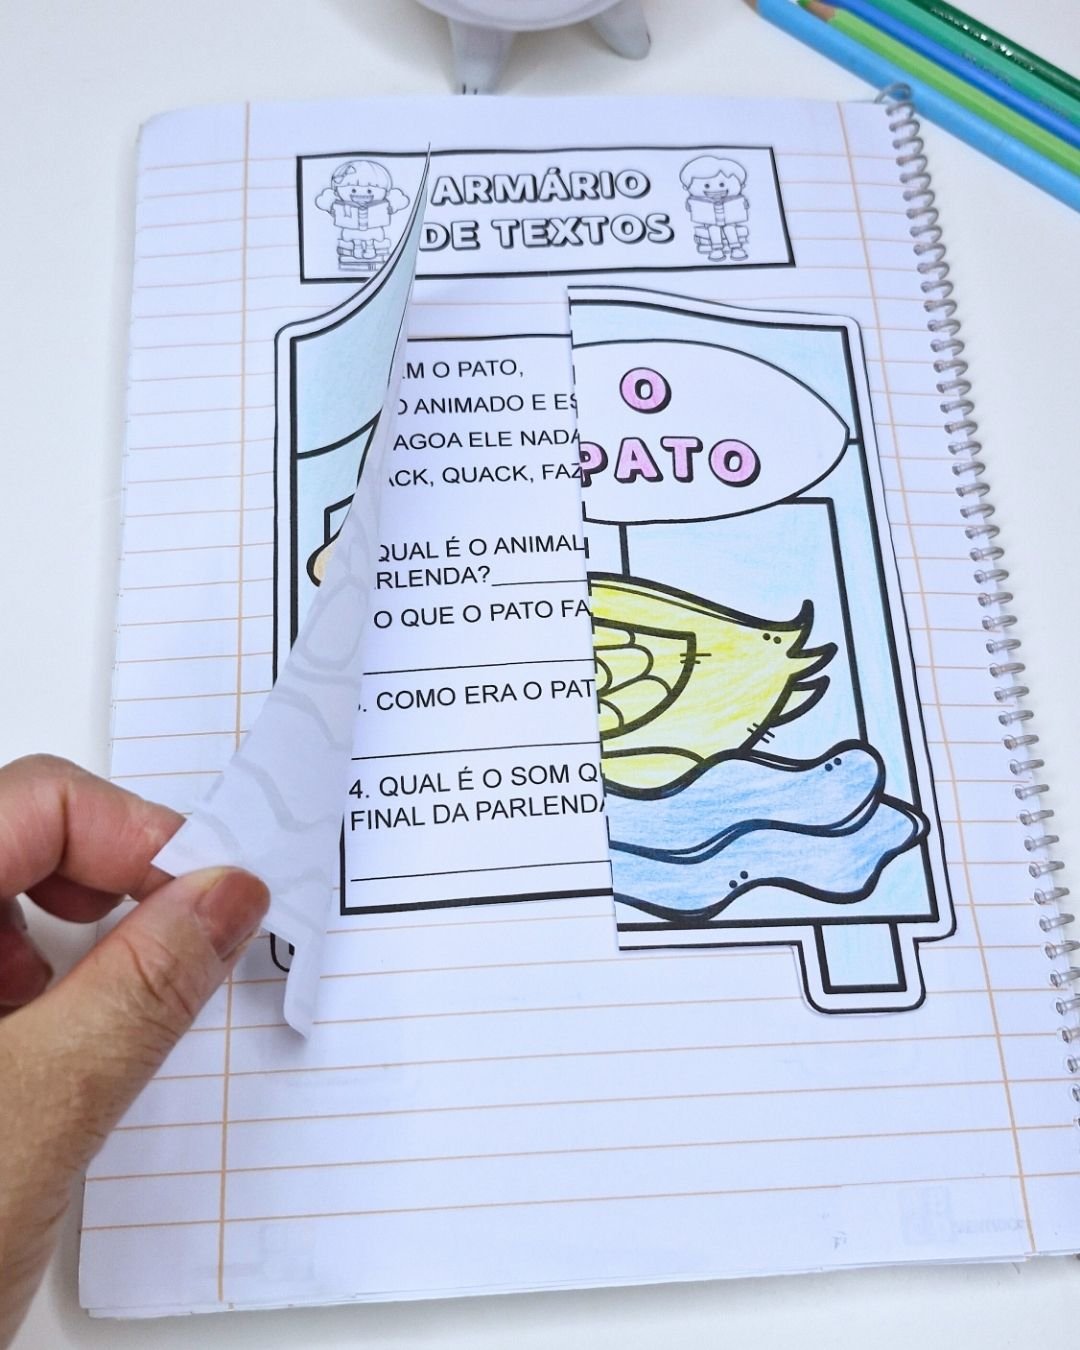 ARMÁRIO
DE TEXTOS
O
PATO
M O PATO,
O ANIMADO E ES
AGOA ELE NADA
ACK, QUACK, FAZ
QUAL É O ANIMAL
RLENDA?
O QUE O PATO FA
. COMO ERA O PAT
4. QUAL É O SOM QU
FINAL DA PARLENDA